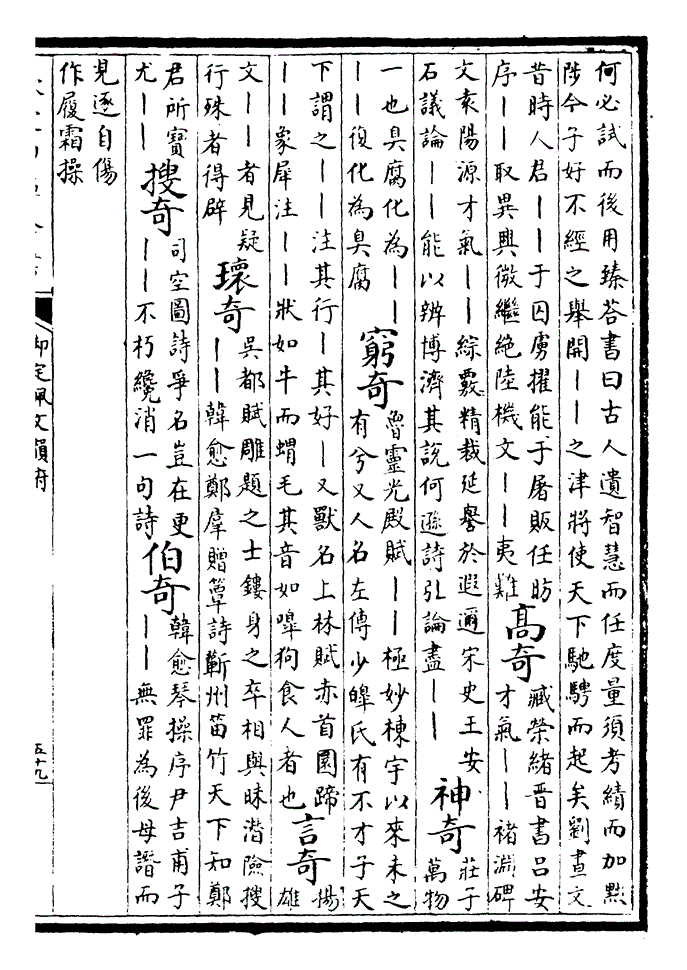 何必試而後用臻荅書曰古人遺智慧而任度量須考績而加黜
陟今子好不經之舉開——之津將使天下馳騁而起矣劉晝文
昔時人君——于囚虜擢能于屠販任昉
序——取異興微繼絕陸機文——夷難
高奇
臧榮緒晉書呂安
才氣——褚淵碑
文袁陽源才氣——綜覈精裁延譽於遐邇宋史王安
石議論——能以辨博濟其說何遜詩引論盡——
神奇
莊子
萬物
一也臭腐化為——
——復化為臭腐
窮奇
魯靈光殿賦——極妙棟宇以來未之
有兮又人名左傳少皞氏有不才子天
下謂之——注其行—其好—又獸名上林賦赤首圜蹄
——象犀注——狀如牛而蝟毛其音如嘷狗食人者也
言奇
揚
雄
文——者見疑
行殊者得辟
瓌奇
吳都賦雕題之士鏤身之卒相與昧潛險搜
——韓愈鄭羣贈簟詩蘄州笛竹天下知鄭
君所寶
尤——
搜奇
司空圖詩爭名豈在更
——不朽纔消一句詩
伯奇
韓愈琴操序尹吉甫子
——無罪為後母譖而
見逐自傷
作履霜操
御定佩文韻府
五十九